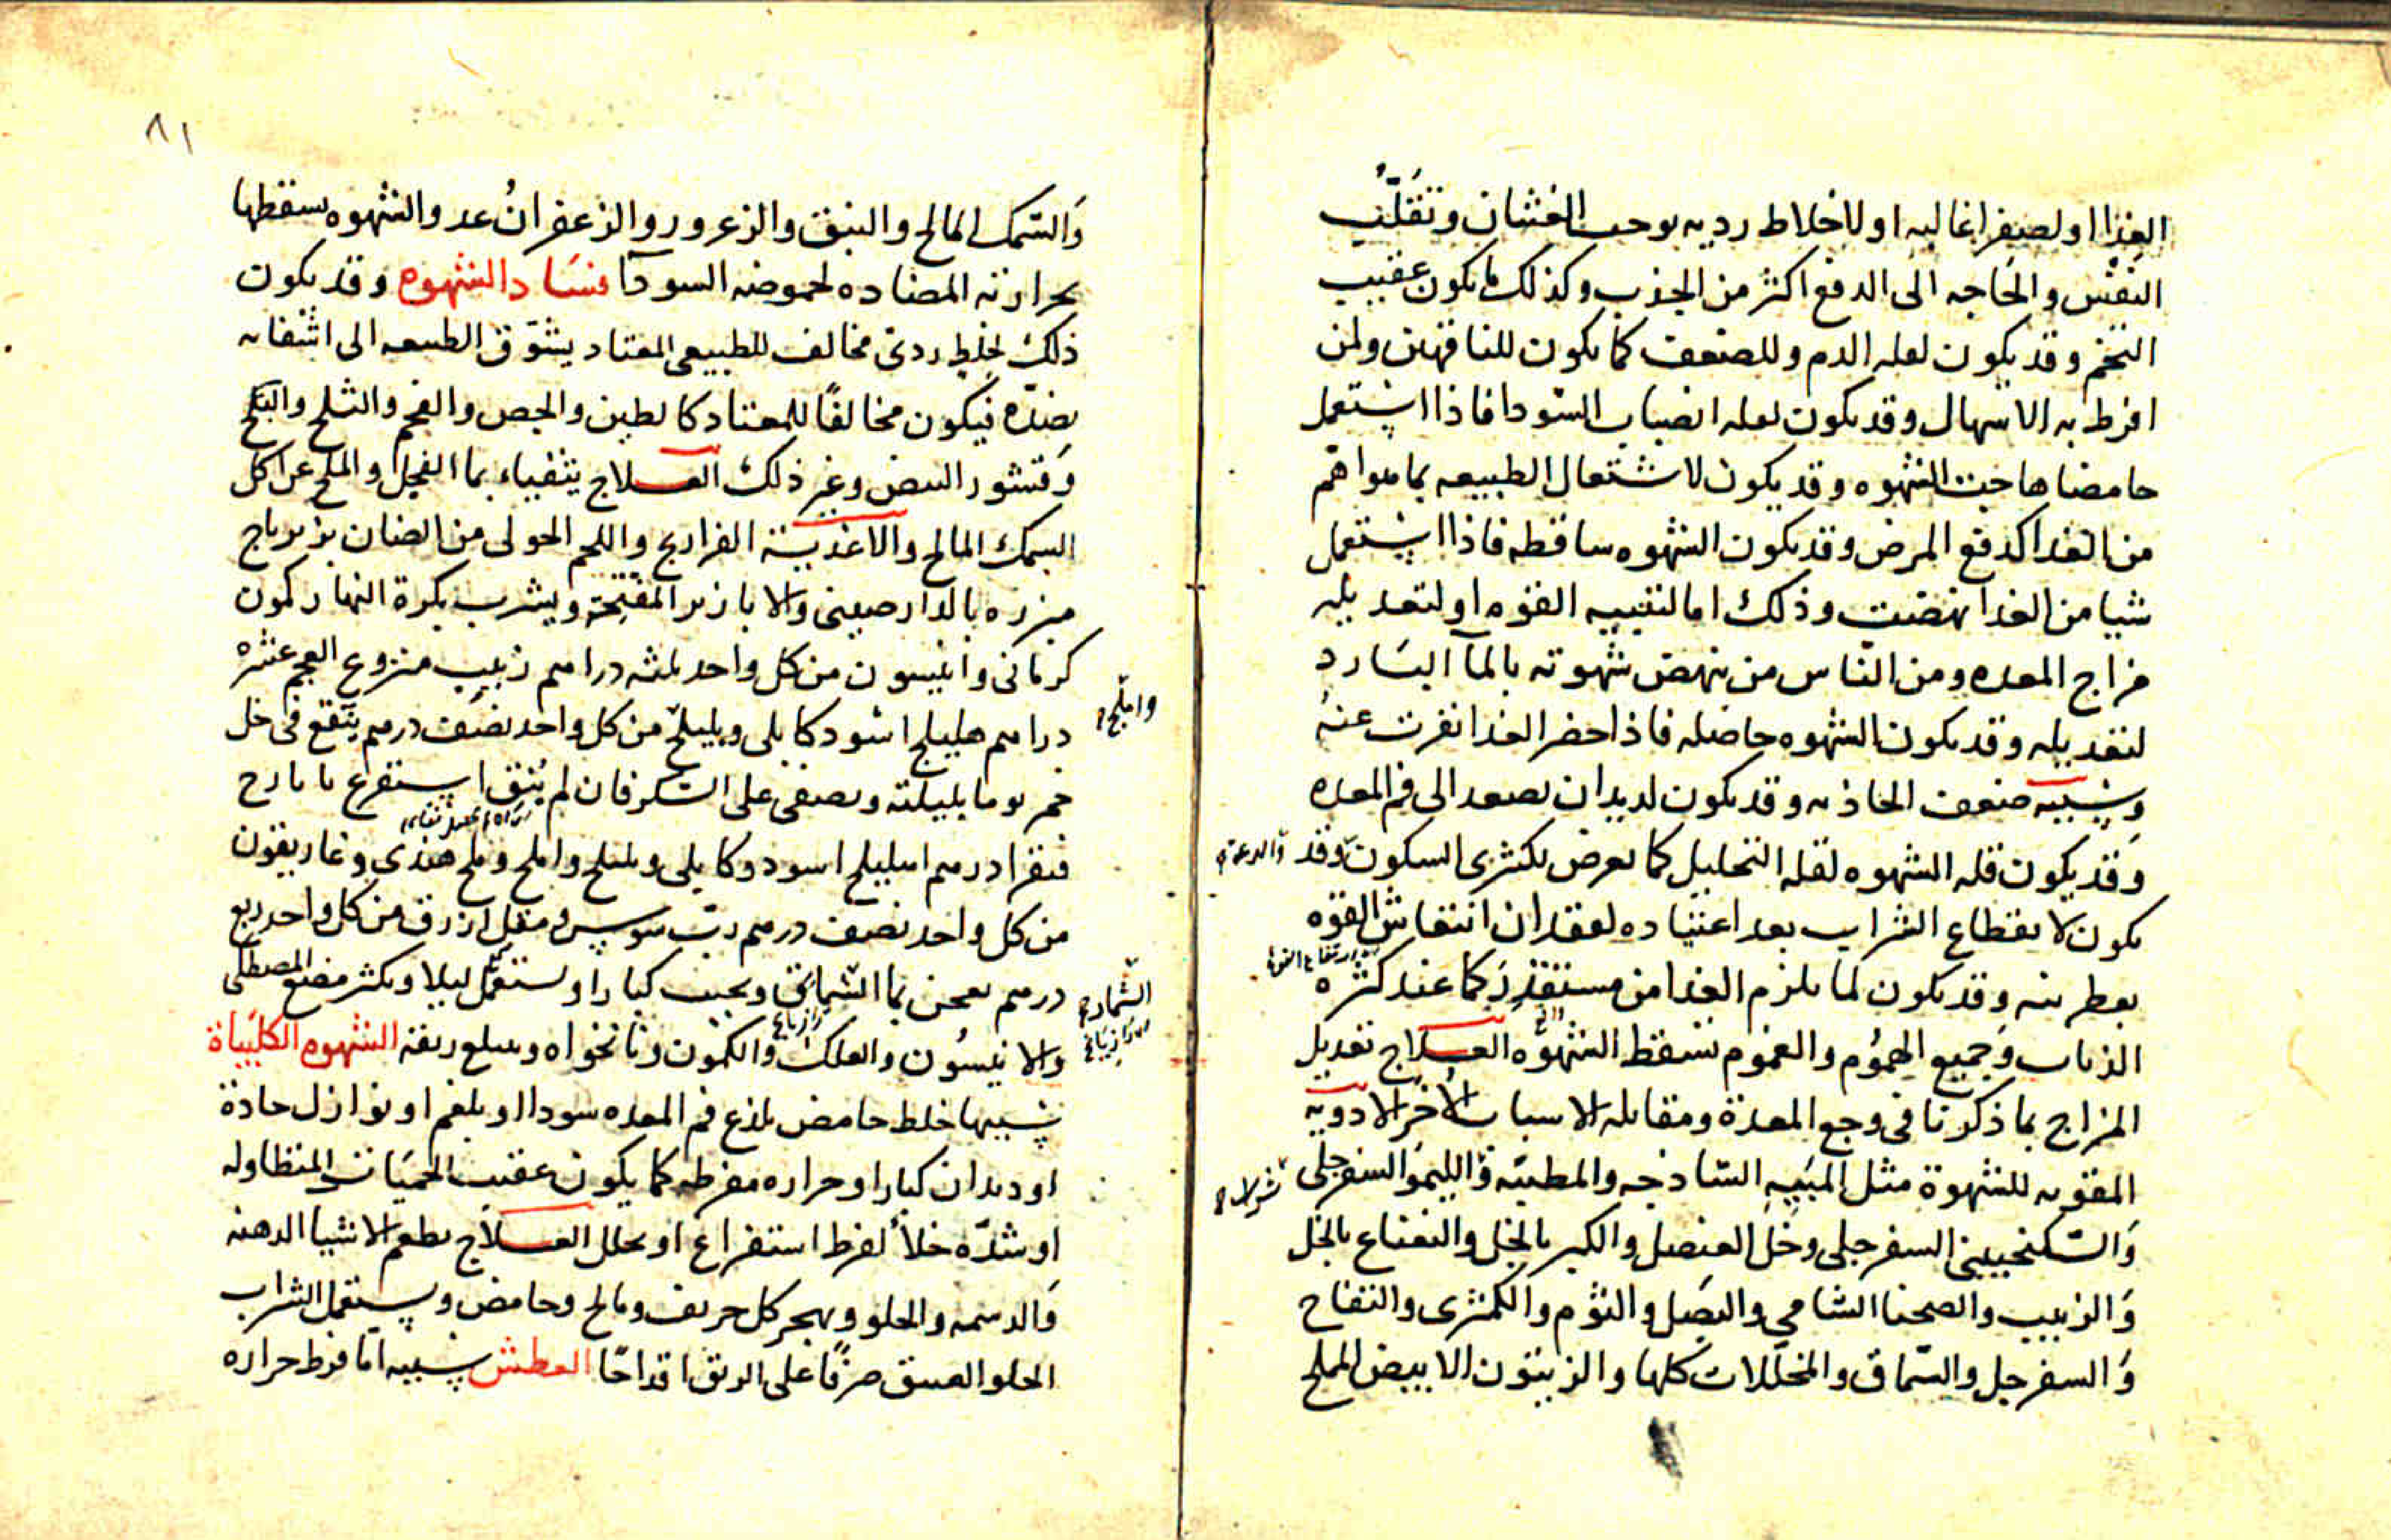 الغذا او لصفرا غالبه او لاخلاط رديه يوجب الغثيان وتقلّب
النفس والحاجه الى الدفع اكثر من الجذب وكذلك ما يكون عقيب
التخم وقد يكون لقله الدم وللضعف كما يكون للناقهين ولمن
افرط به الاسهال وقد يكون لقله انصباب السودا فاذا استعمل
حامضا هاجت الشهوه وقد يكون لاشتغال الطبيعه بما هو اهم
من الغذا كدفع المرض وقد يكون الشهوه ساقطه فاذا استعمل
شيا من الغذا نهضت وذلك اما لتنبيه القوه او لتعديله
مزاج المعده ومن الناس من ينهض شهوته بالمآ البارد
لتعديله وقد يكون الشهوه حاصله فاذا حضر الغذا نفرت عنه
وسببه ضعف الجاذبه وقد يكون لديدان يصعد الى فم المعده
وقد يكون قله الشهوه لقله التحليل كما يعرض لكثيرى السكون وقد
والدعة
يكون لانقطاع الشراب بعد اعتياده لفقدان انتفاش القوه
بعطريته وقد يكون لما يلزم الغذا من مستقذر كما عند كثره
الذباب وجميع الهموم والغموم تسقط الشهوه العلاج تعديل
المزاج بما ذكرنا فى وجع المعدة ومقابله الاسباب الأخر الادويه
المقويه للشهوة مثل الميبه الساذجه والمطيبّه والليمو السفرجلى
والسكنجبين السفرجلى وخل العنصل والكبر بالخل والنعناع بالخل
والزبيب والصحنا الشامى والبصل والثوم والكمثرى والتفاح
والسفرجل والسّماق والمخللات كلها والزيتون الابيض المملح
٨١
والسّمك المالح والنبق والزعرور والزعفران عدو الشهوه يسقطها
بحرارته المضاده لحموضه السودآ فساد الشهوه وقد يكون
ذلك لخلط ردى مخالف للطبيعى المعتاد يشوّق الطبيعه الى اشتفاه
بضدّه فيكون مخالفًا للمعتاد كالطين والجص والفحم والثلج والبلح
وقشور البيض وغير ذلك العلاج يتقياء بما الفجل والملح عن اكل
السمك المالح والاغذية الفراريج واللحم الحولى من الضان بزيرباج
مبزره بالدارصينى والابازير المفتّحة ويشرب بكرة النهار كمون
كرمانى وانيسون من كل واحد ثلثه دراهم زبيب منزوع العجم عشره
دراهم هليلج اسود كابلى وبليلج من كل واحد نصف درهم ينقع فى خل
واملج
خمر يوما بليلته ويصفى على السكر فان لم ينق استفرغ بايارج
فيقرا درهم اهليلج اسود وكابلى وبليلج واملج وملح هندى وغاريقون
من كل واحد نصف درهم ربّ سوس ومقل ازرق من كل واحد ربع
درهم يعجن بما الشمار ويحبب كبارا ويستعمل ليلا ويكثر مضغ المصطكى
والانيسون والعلك والكمون ونانخواه ويبلع ريقه الشهوه الكلبياة
سببها خلط حامض يلذع فم المعده سودا او بلغم او نوازل حادة
او ديدان كبار او حراره مفرطه كما يكون عقيب الحميات المتطاوله
او شدّه خلأ لفرط استفراغ او تحلل العلاج يطعم الاشيا الدهنه
والدسمه والحلو ويهجر كل حريف ومالح وحامض ويستعمل الشراب
الحلو العتيق صرفًا على الريق اقداحًا العطش سببه امّا فرط حراره